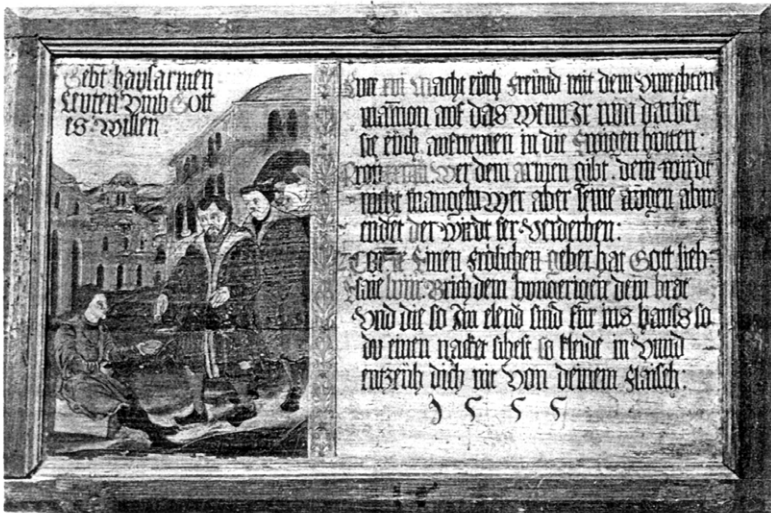 Gebt hausarmen
Leuten Vmb Gott
es Willen
Luce xvi Macht eüch freünd mit dem Vnrechten
mammon auf das Wenn Jr nun darbet
sie eüch aufnemen in die Ewigen hütten:
Wer dem armen gibt. dem wirdt
nicht mangeln Wer aber seine augen abw
endet der Wirdt ser Verderben:
Einen frölichen geber hat Gott lieb:
Brich dem hongerigen dein brot
Vnd die so Im elend sind für ins hauss so
du einen nacket sihest so kleide in Vnnd
entzeüh dich nit Von deinem flaisch:
1555